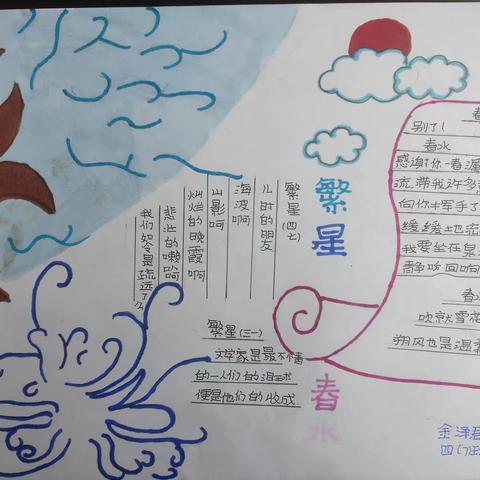 繁星
春水
繁星(四七)
儿时的朋友
海波啊
山影呵
灿烂的晚霞啊
悲壮的喇叭
我们如今是疏远了么
繁星(三一)
文学家是最不情
的一人们的泪珠
便是他们的收成
春
别了!
春水
感谢你一春潺
流,带我许多
向你挥手了
缓缓地流
我要坐在泉
静听回响
春水
吹就雪花
朔风也是温
金泽
四(7)班